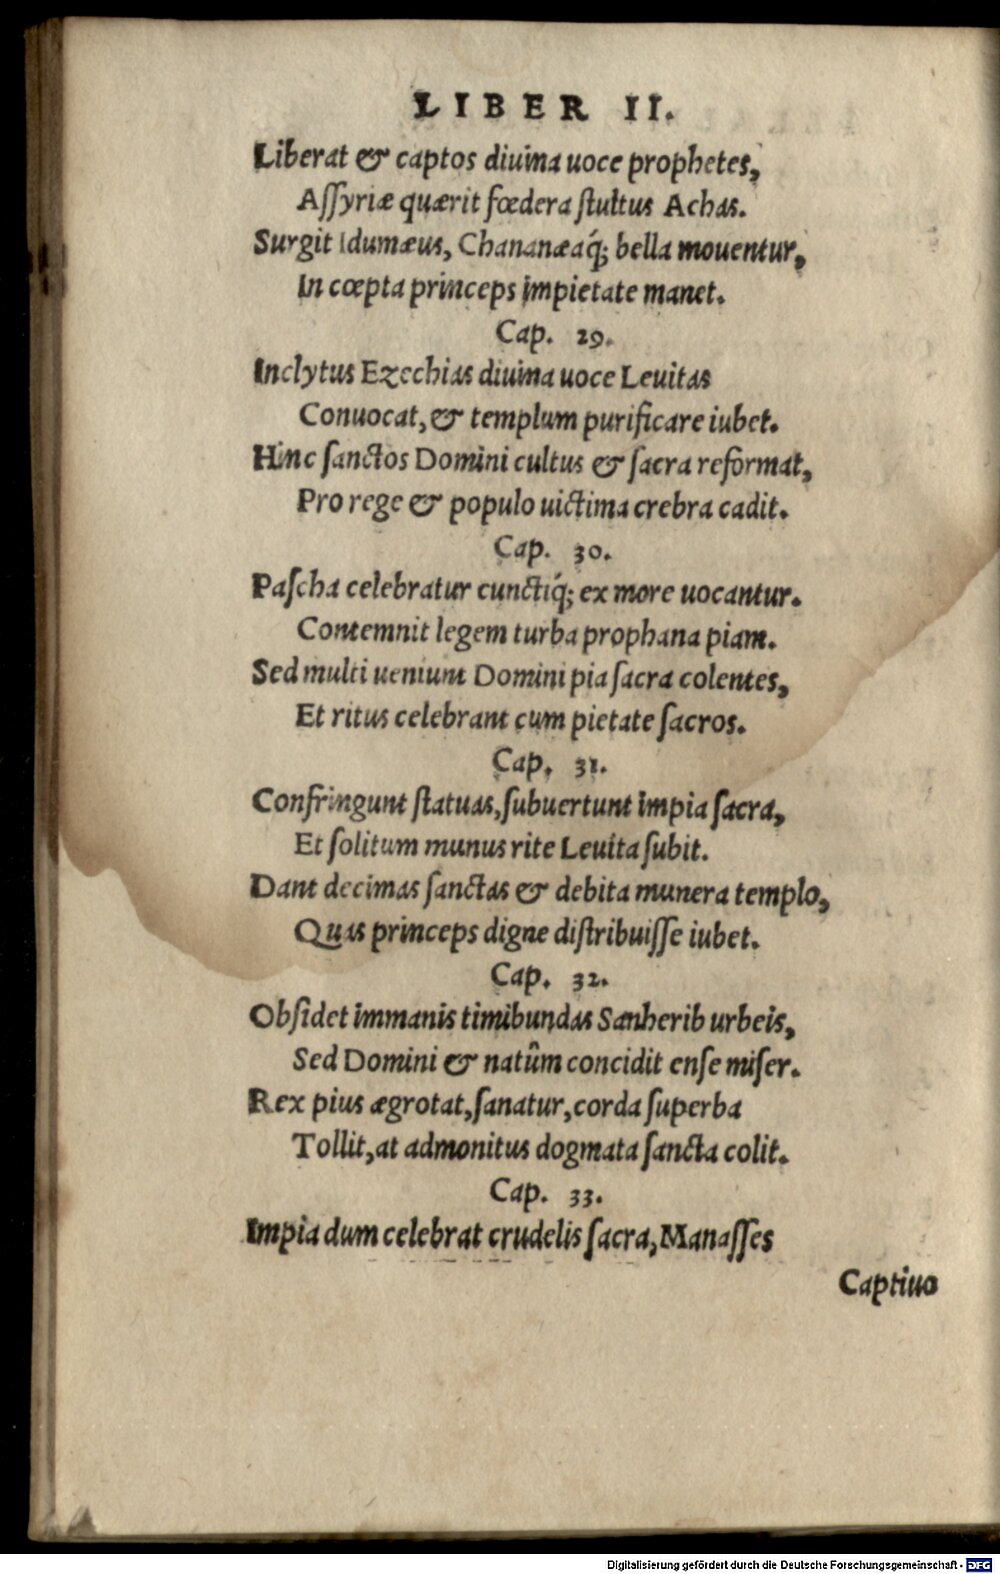 LIBER II.
Liberat & captos diuina uoce prophetes,
Aſſyriæ quærit fœdera ſtultus Achas.
Surgit Idumæus, Chananæaq́; bella mouentur,
In cœpta princeps impietate manet.
Cap. 29.
Inclytus Ezechias diuina uoce Leuitas
Conuocat, & templum purificare iubet.
Hinc ſanctos Domini cultus & ſacra reformat,
Pro rege & populo uictima crebra cadit.
Cap. 30.
Paſcha celebratur cunctiq́; ex more uocantur.
Contemnit legem turba prophana piam.
Sed multi ueniunt Domini pia ſacra colentes,
Et ritus celebrant cum pietate ſacros.
Cap. 31.
Confringunt ſtatuas, ſubuertunt impia ſacra,
Et ſolitum munus rite Leuita ſubit.
Dant decimas ſanctas & debita munera templo,
Quas princeps digne diſtribuiſſe iubet.
Cap. 32.
Obſidet immanis timibundas Sanherib urbeis,
Sed Domini & natûm concidit enſe miſer.
Rex pius ægrotat, ſanatur, corda ſuperba
Tollit, at admonitus dogmata ſancta colit.
Cap. 33.
Impia dum celebrat crudelis ſacra, Manaſſes
Captiuo
Digitalisierung gefördert durch die Deutsche Forschungsgemeinschaft - DFG